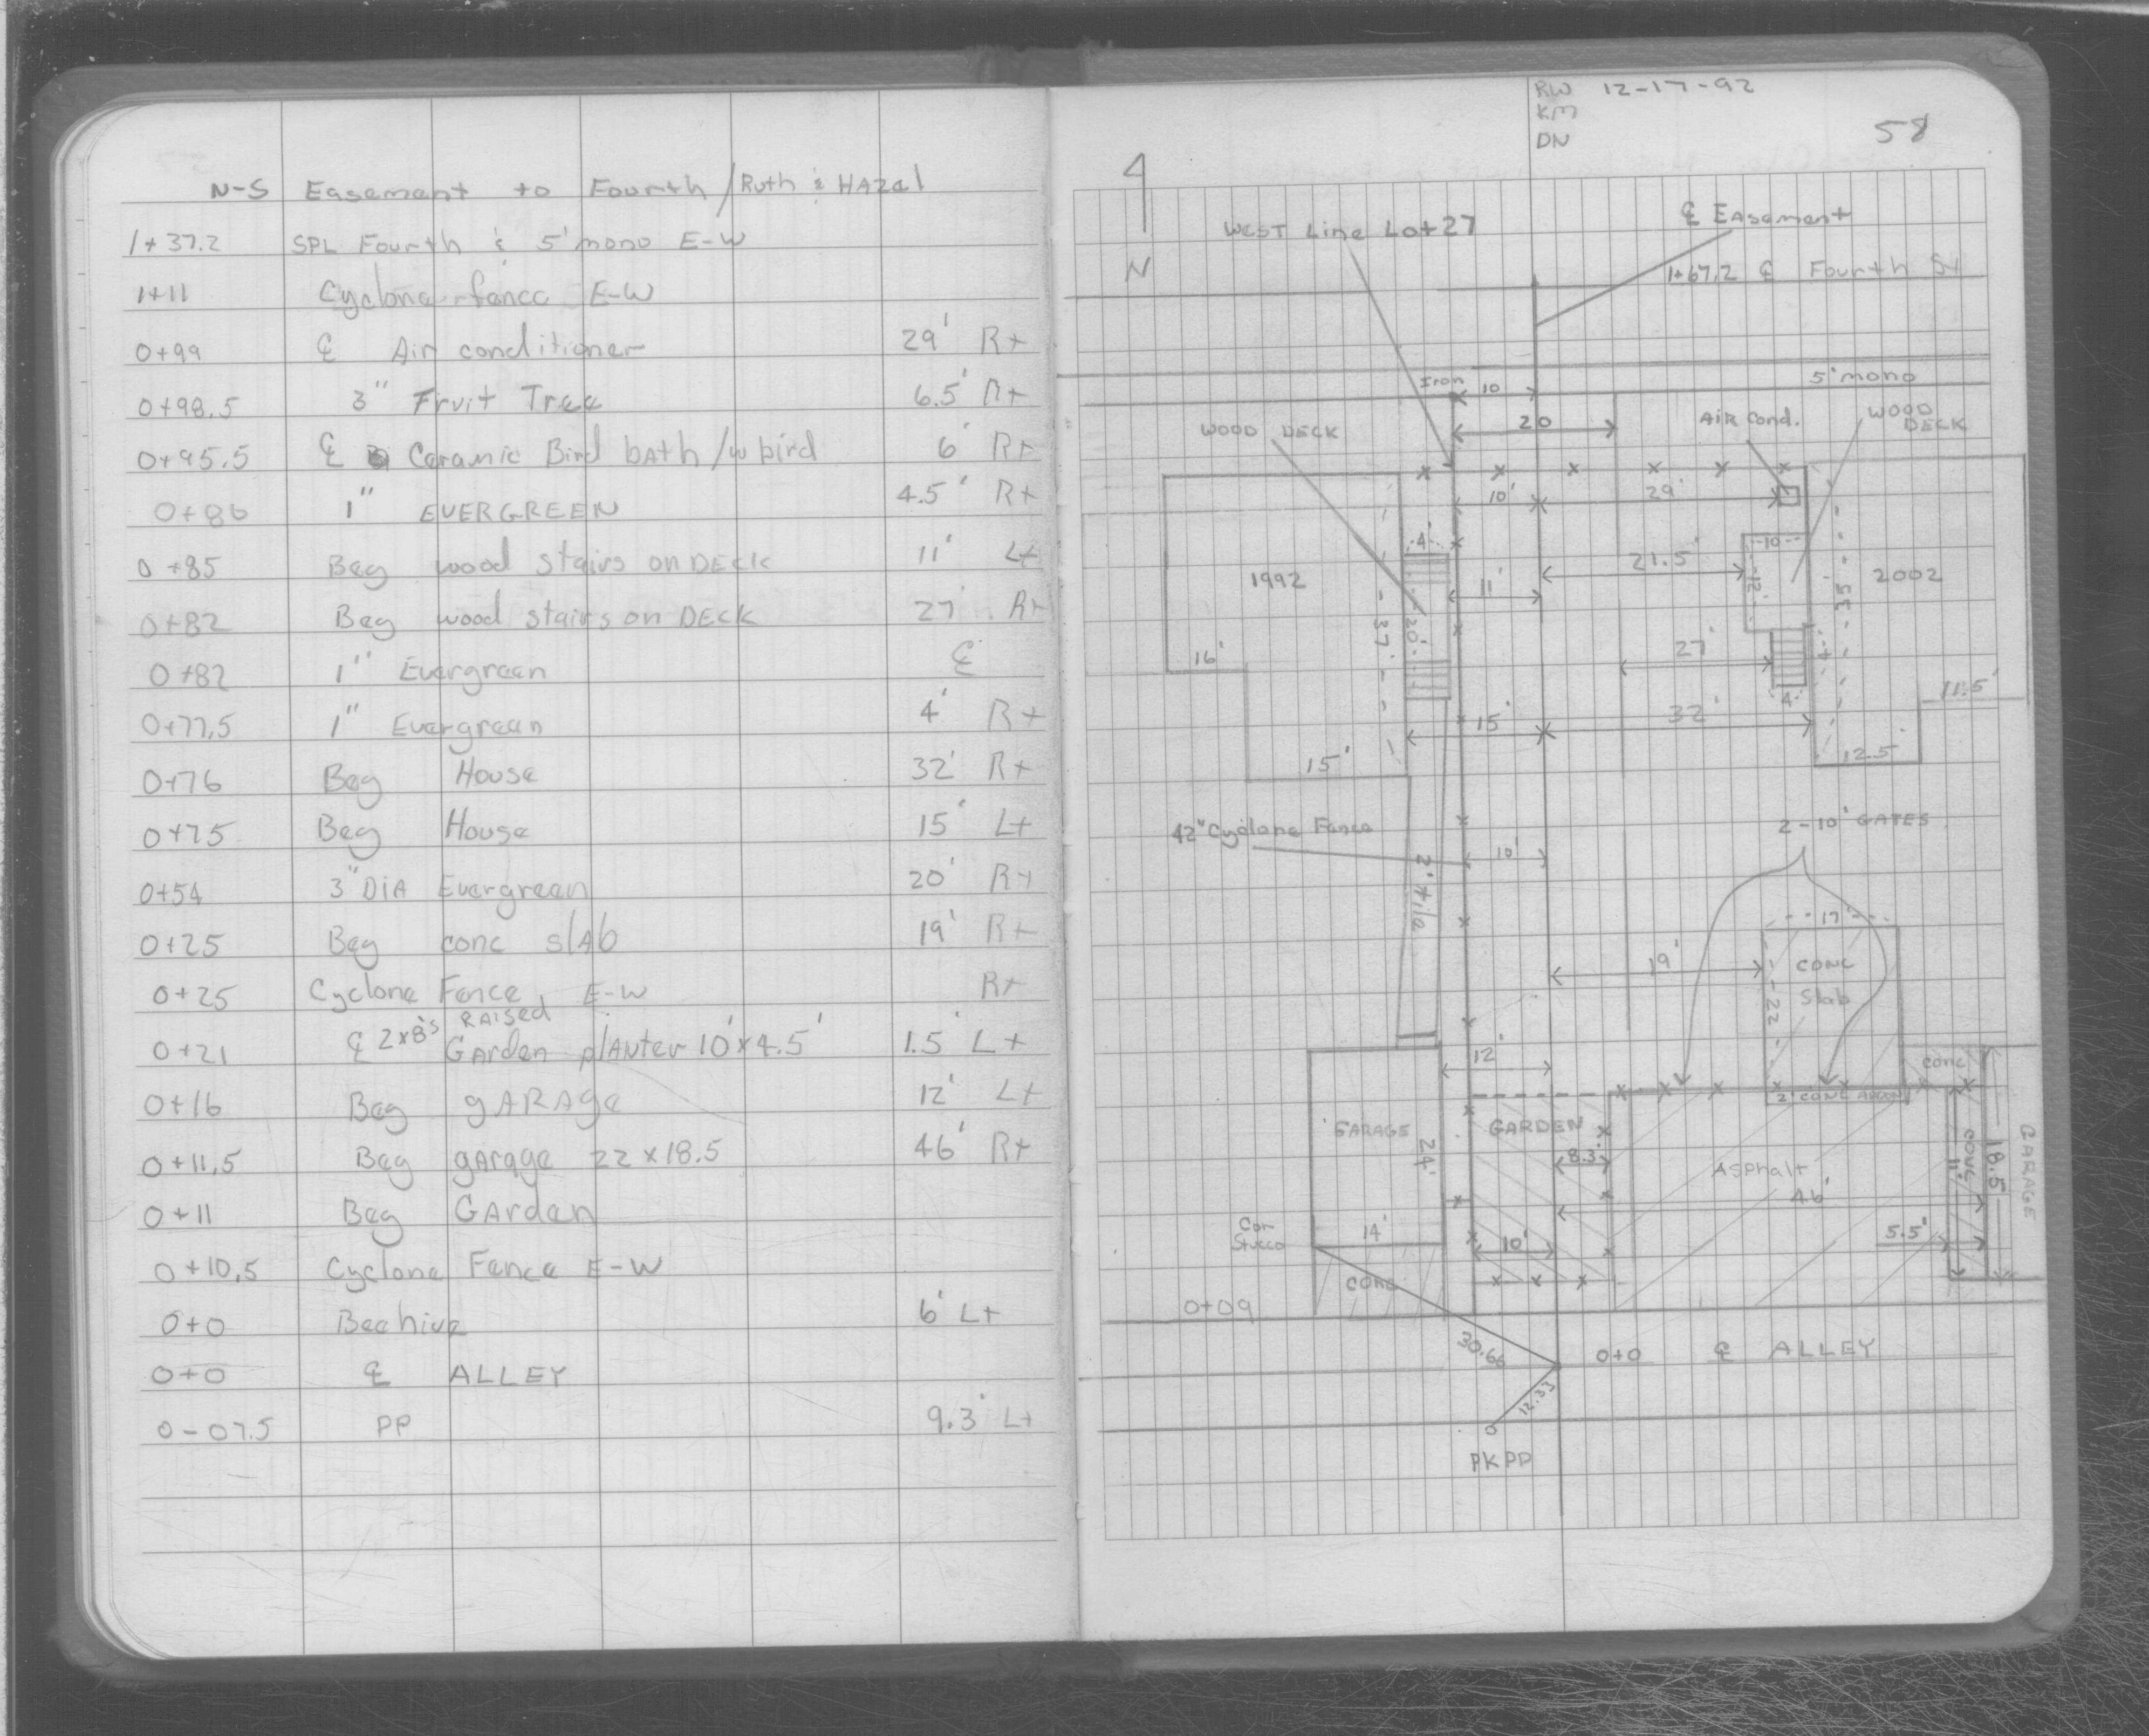 N-S Easement to Fourth / Ruth & HAZel
1+37.2 SPL Fourth & 5' mono E-W
1+11 Cyclone fence E-W
0+99 ℄ Air conditioner 29' Rt
0+98.5 3" Fruit Tree 6.5' Rt
0+95.5 ℄ Ceramic Bird bAth /w bird 6' Rt
0+86 1" EVERGREEN 4.5' Rt
0+85 Beg wood stairs on DECK 11' Lt
0+82 Beg wood stairs on DECK 27' Rt
0+82 1" Evergreen ℄
0+77.5 1" Evergreen 4' Rt
0+76 Beg House 32' Rt
0+75 Beg House 15' Lt
0+54 3" DIA Evergreen 20' Rt
0+25 Beg conc slAb 19' Rt
0+25 Cyclone Fence, E-W Rt
0+21 ℄ 2x8's RAISED GArden plANter 10' x 4.5' 1.5' Lt
0+16 Beg gARAge 12' Lt
0+11.5 Beg gArage 22 x 18.5 46' Rt
0+11 Beg GArden
0+10.5 Cyclone Fence E-W
0+0 Beehive 6' Lt
0+0 ℄ ALLEY
0-07.5 PP 9.3' Lt
RW 12-17-92
KM
DN
58
N
WEST Line Lot 27
℄ Easement
1+67.2 ℄ Fourth St
Iron
10
5' mono
20
WOOD DECK
AIR Cond.
WOOD
DECK
10'
29'
4'
10
21.5'
12'
11'
1992
2002
37'
20'
35'
16'
27'
4'
11.5'
15'
32'
15'
12.5'
42" Cyclone Fence
2-10' GATES
10'
2' tile
17'
19'
CONC
Slab
22'
12'
CONC
2' CONC APRON
GARAGE
24'
GARDEN
8.3
Asphalt
46'
CONC
11'
18.5'
GARAGE
Cor
Stucco
14'
10'
5.5'
CONC
0+09
30.66
0+0 ℄ ALLEY
12.33
PK PP